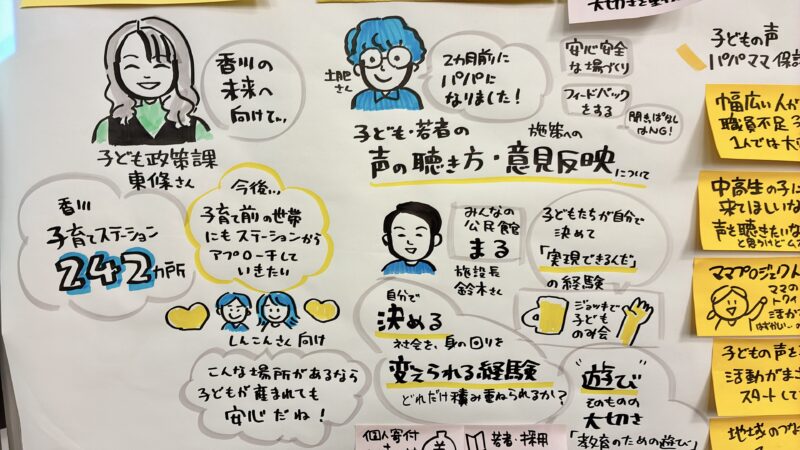 香川の
未来へ
向けて…
子ども政策課
東條さん
香川
子育てステーション
242ヵ所
今後…
子育て前の世帯
にもステーションから
アプローチして
いきたい
しんこんさん向け
こんな場所があるなら
子どもが産まれても
安心だね!
土肥
さん
2カ月前に
パパに
なりました!
安心安全
な場づくり
フィードバック
をする
聞きっぱなし
はNG!
子ども・若者の 施策への
声の聴き方・意見反映について
みんなの
公民館
まる
施設長
鈴木さん
子どもたちが自分で
決めて
「実現できるんだ」
の経験
ジョッキで
子ども
のみ会
自分で
決める
社会を、身の回りを
変えられる経験
どれだけ積み重ねられるか?
"遊び"
そのものの
大切さ
「教育のための遊び」
個人寄付
若者・採用
子どもの声
パパママ
幅広い人が
職員不足
1人では
中高生の子に
来てほしいな
声を聴きたいな
と思うけど
ママプロジェクト
ママの
トワイ
活か
はずかしい…
子どもの声を
活動がま
スタートして
地域のつな